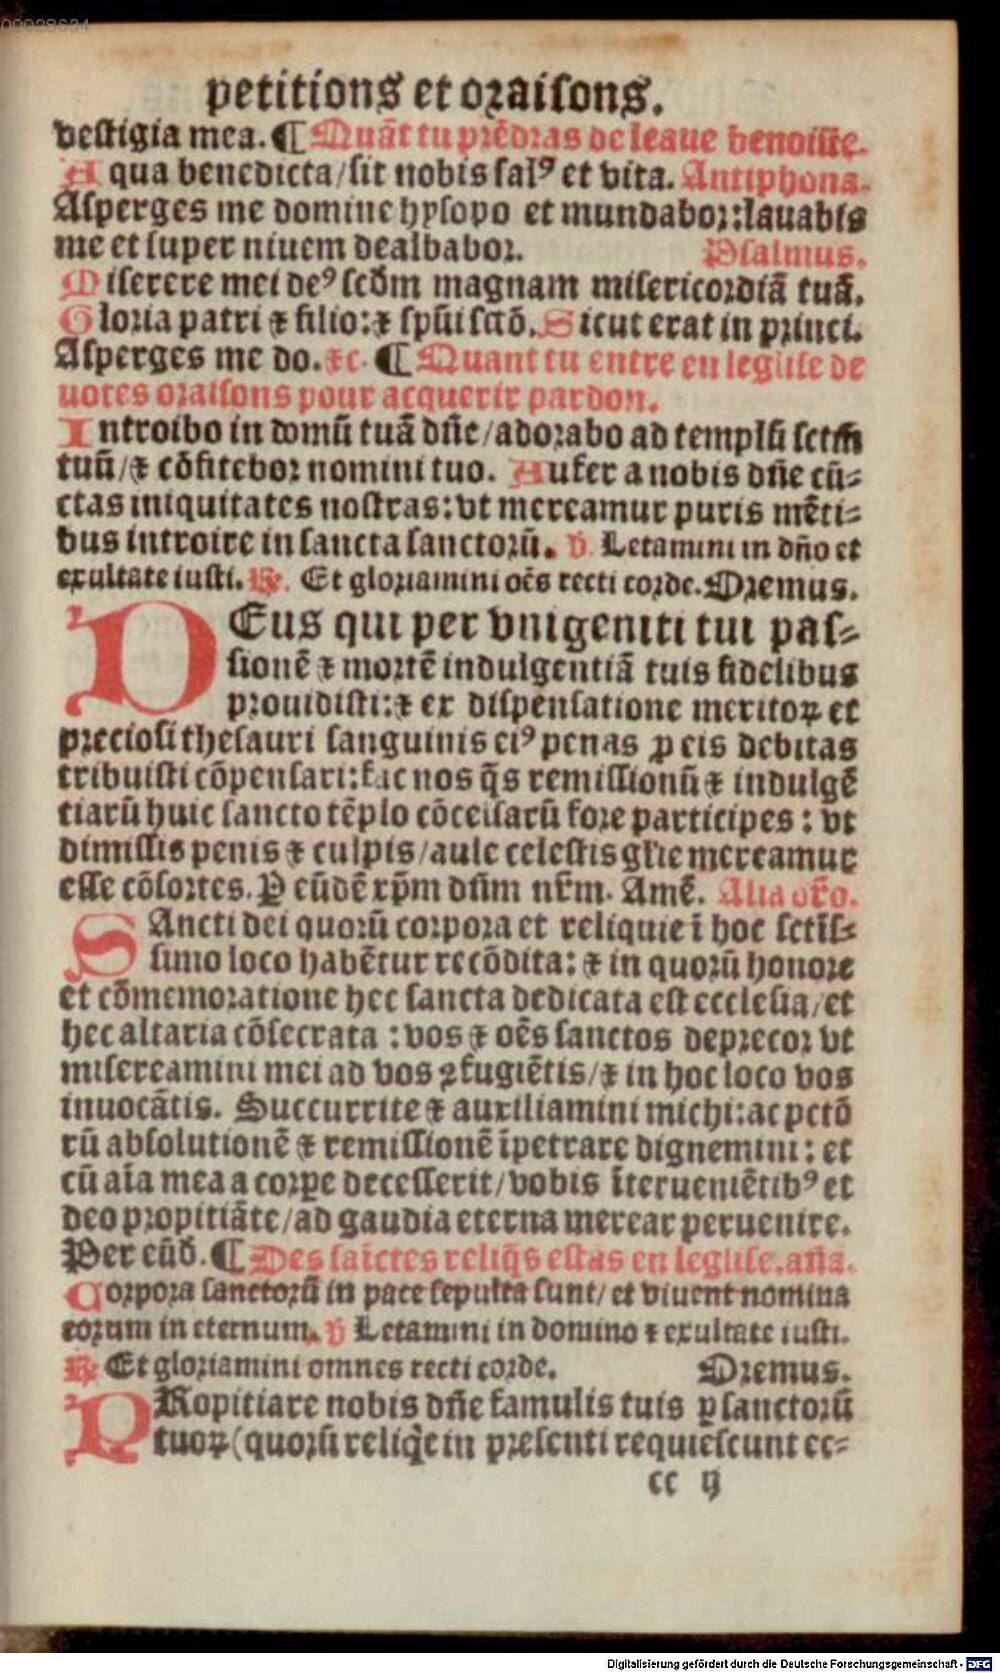 00028634
petitions et oraisons.
vestigia mea. ¶ Quāt tu prēdras de leaue benoiste.
Aqua benedicta/sit nobis salꝰ et vita. Antiphona.
Asperges me domine hysopo et mundabor:lauabis
me et super niuem dealbabor. Psalmus.
Miserere mei deꝰ scđm magnam misericordiā tuā.
Gloria patri ⁊ filio:⁊ spūi sctō. Sicut erat in princi.
Asperges me do. ⁊c. ¶ Quant tu entre en leglise de
uotes oraisons pour acquerir pardon.
Introibo in domū tuā dn̄e/adorabo ad templū sctm̄
tuū/⁊ cōfitebor nomini tuo. Aufer a nobis dn̄e cū-
ctas iniquitates nostras:vt mereamur puris mēti-
bus introire in sancta sanctorū. ℣. Letamini in dn̄o et
exultate iusti. ℟. Et gloriamini oēs recti corde. Oremus.
DEus qui per vnigeniti tui pas-
sionē ⁊ mortē indulgentiā tuis fidelibus
prouidisti:⁊ ex dispensatione meritoꝝ et
preciosi thesauri sanguinis eiꝰ penas ꝓ eis debitas
tribuisti cōpensari:fac nos q̄s remissionū ⁊ indulgē
tiarū huic sancto tēplo cōcessarū fore participes : vt
dimissis penis ⁊ culpis/aule celestis gl̄ie mereamur
esse cōsortes. P eūdē xp̄m dn̄m nr̄m. Amē. Alia or̄o.
SAncti dei quorū corpora et reliquie ī hoc sctīs-
simo loco habētur recōdita: ⁊ in quorū honore
et cōmemoratione hec sancta dedicata est ecclesia/et
hec altaria cōsecrata : vos ⁊ oēs sanctos deprecor vt
misereamini mei ad vos ꝯfugiētis/⁊ in hoc loco vos
inuocātis. Succurrite ⁊ auxiliamini michi:ac pctō
rū absolutionē ⁊ remissionē īpetrare dignemini : et
cū aīa mea a corꝑe decesserit/vobis īterueniētibꝰ et
deo propitiāte/ad gaudia eterna merear peruenire.
Per eūd. ¶ Des saīctes reliq̄s estās en leglise. an̄a.
Corpora sanctorū in pace sepulta sunt/ et viuent nomina
eorum in eternum. ℣ Letamini in domino ⁊ exultate iusti.
℟ Et gloriamini omnes recti corde. Oremus.
PRopitiare nobis dn̄e famulis tuis ꝑ sanctorū
tuoꝝ (quorū reliq̄e in presenti requiescunt ec-
cc ij
Digitalisierung gefördert durch die Deutsche Forschungsgemeinschaft - DFG